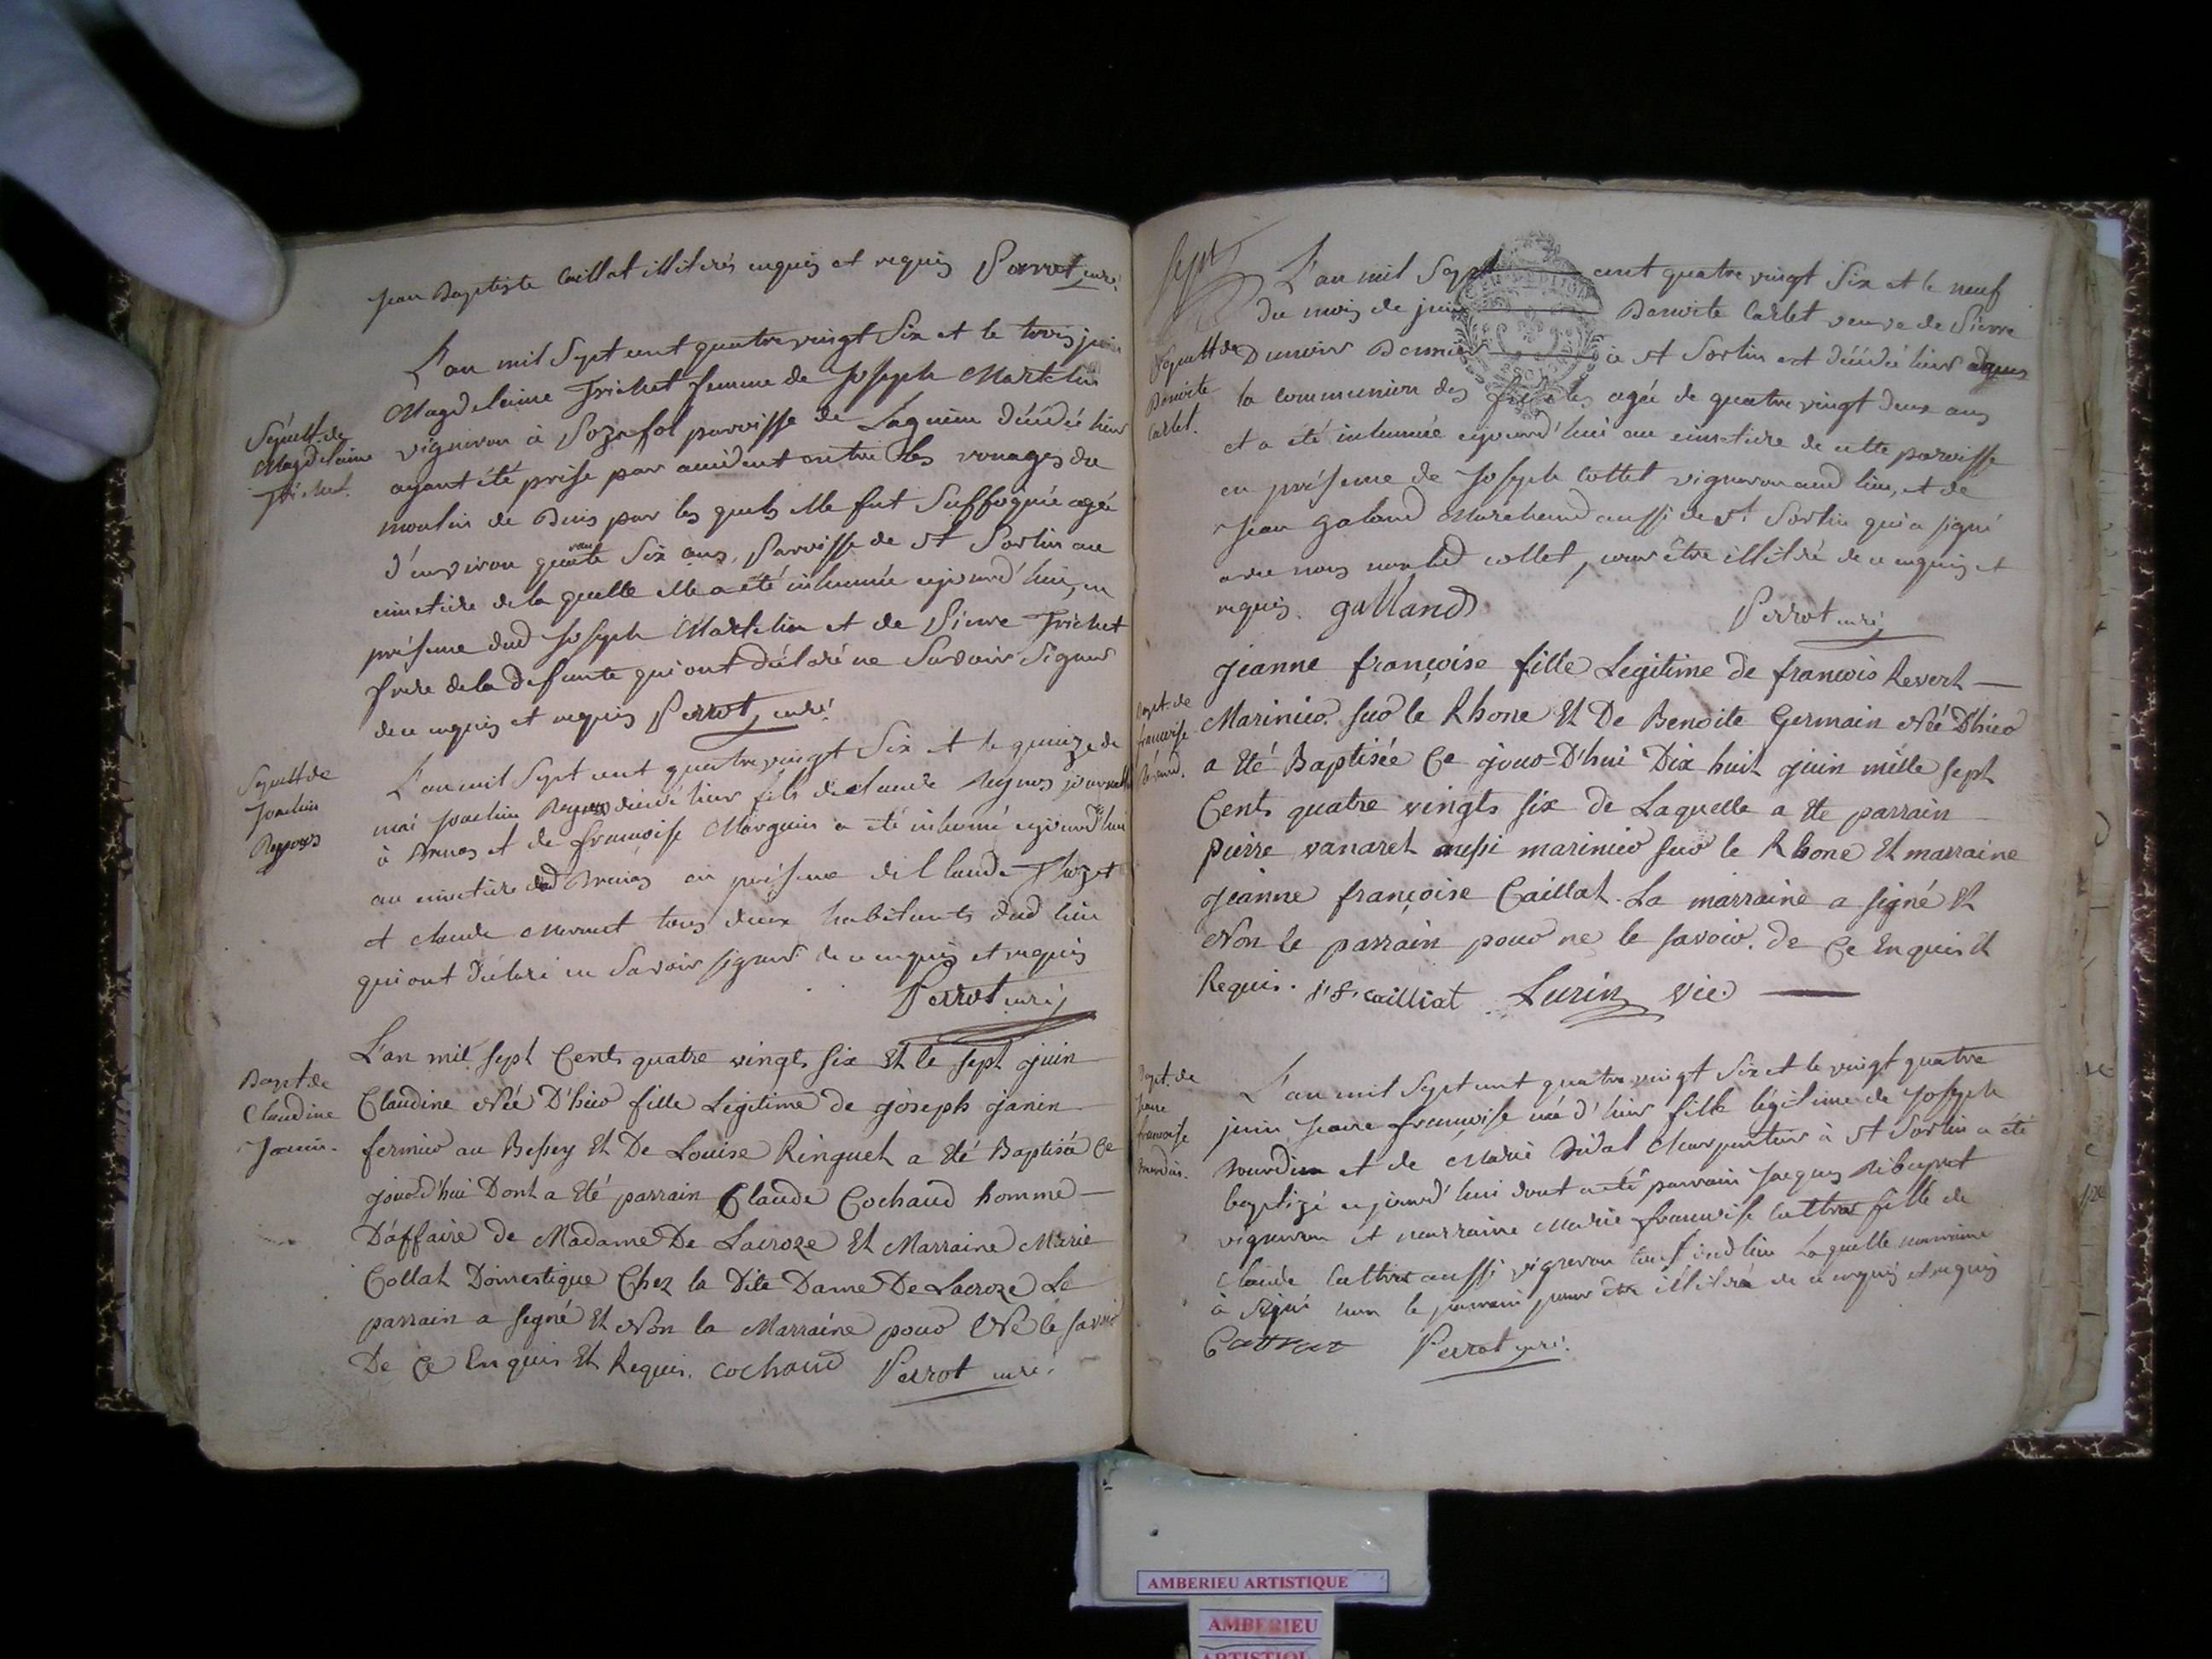 jean Baptiste Caillat illitérés enquis et requis Perrot curé.
L'an mil Sept cent quatre vingt Six et le trois juin
Magdelaine Trichet femme de Joseph Martelin
vigneron à Pozafol parroisse de Lagnieu décédée hier
ayant été prise par accident entre les rouages du
moulin de Buis par les quels elle fut Suffoquée agée
d'environ quarante Six ans, Parroisse de St Sorlin au
cimetière de la quelle elle a été inhumée aujourd'hui, en
présence dud Joseph Martelin et de Pierre Trichet
frere de la defunte qui ont déclaré ne Savoir Signer
de ce enquis et requis Perrot, curé.
Sépult. de
Magdelaine
Trichet.
Sepult de
Joachin
L'an mil Sept cent quatre vingt Six et le quinze de
mai Joachin décédé hier fils de claude
à et de françoise Marguin a été inhumé aujourd'hui
au cimetière dud en présence de Claude
et claude tous deux habitants dud lieu
qui ont déclaré ne Savoir signer de ce enquis et requis
Perrot curé
Bapt de
Claudine
Janin.
L'an mil sept Cents quatre vingts six Et le sept juin
Claudine Née D'hier fille Legitime de joseph janin
fermier au Bessey Et De Louise Ringuet a Eté Baptisée Ce
jourd'hui Dont a Eté parrain Claude Cochaud homme
D'affaire de Madame De Lacroze Et Marraine Marie
Collat Domestique Chez la Dite Dame De Lacroze Le
parrain a signé Et Non la Marraine pour Ne le savoir
De Ce Enquis Et Requis. cochaud Perrot curé.
sept
L'an mil Sept cent quatre vingt Six et le neuf
du mois de juin Benoite Carlet veuve de Pierre
à St Sorlin est décédée hier
la communion des fidelles agée de quatre vingt deux ans
et a été inhumée aujourd'hui au cimetiere de cette paroisse
en présence de Joseph Collet vigneron aud lieu, et de
Jean Galand Marchand aussi de St Sorlin qui a signé
avec nous non led collet, pour être illitéré de ce enquis et
requis. galland Perrot curé
Sepult de
Benoite
Carlet.
Bapt. de
francoise
jeanne françoise fille Legitime de françois Revert
Marinier sur le Rhone Et De Benoite Germain Née D'hier
a Eté Baptisée Ce jour D'hui Dix huit juin mille sept
Cents quatre vingts six de Laquelle a Ete parrain
pierre vanaret aussi marinier sur le Rhone Et marraine
jeanne françoise Caillat. La marraine a signé Et
Non le parrain pour ne le savoir. de Ce Enquis Et
Requis. j. f. cailliat Lurin Vic.
Bapt. de
jeane
francoise
Bourdin.
L'an mil Sept cent quatre vingt Six et le vingt quatre
juin jeane francoise née d'hier fille légitime de Joseph
Bourdin et de Marie Vidal Charpentier à St Sorlin a été
baptizé aujourd'hui dont a été parrain Jacques
vigneron et marraine Marie francoise fille de
Claude aussi vigneron dud lieu Laquelle marraine
à Signé non le parrain pour être illitéré de ce enquis et requis
Perrot curé.
AMBERIEU ARTISTIQUE
AMBERIEU
ARTISTIQU